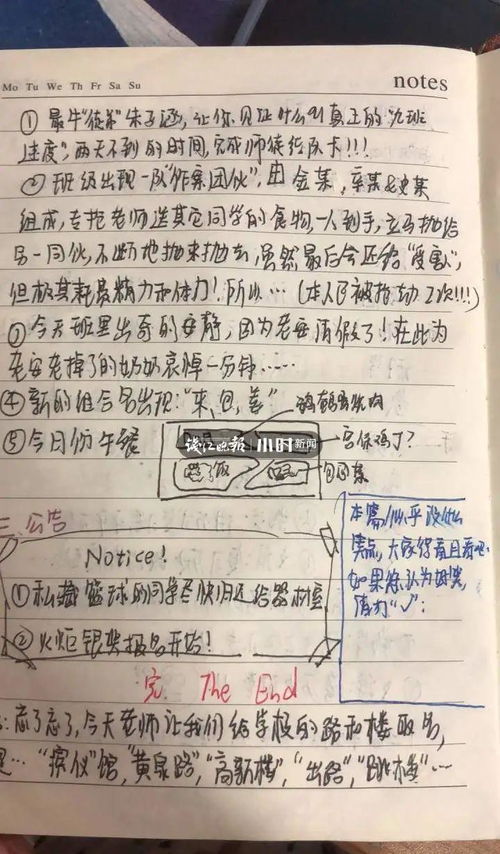 Mo Tu We Th Fr Sa Su
notes
① 最牛"徒弟"朱子涵,让你见证什么叫真正的"九班
速度",两天不到的时间,完成师徒结队卡!!!
② 班级出现一队"作案团伙",由金某,辛某&史某
组成,专抢老师送其它同学的食物,一入到手,立马抛给
另一同伙,不断地抛来抛去,虽然最后会还给"受害",
但极其耗费精力和体力!所以…(本人已被抢劫2次!!!)
③今天班里出奇的安静,因为老安请假了!在此为
老安老掉了的奶奶哀悼一分钟……
④新的组合名出现:"来,包,善"
⑤今日份午餐
宫保鸡丁?
钱江晚报
小时新闻
三.公告
Notice!
①私藏篮球的同学尽快归还给器材室
②火炬银奖报名开始!
本篇似乎没什么
笑点,大家将就看且看吧
如果你认为好笑,
请打"√":
完 The End
:忘了忘了,今天老师让我们给学校的路和楼取名,
…"殡仪"馆,"黄泉路","高新楼","出路","跳楼"…